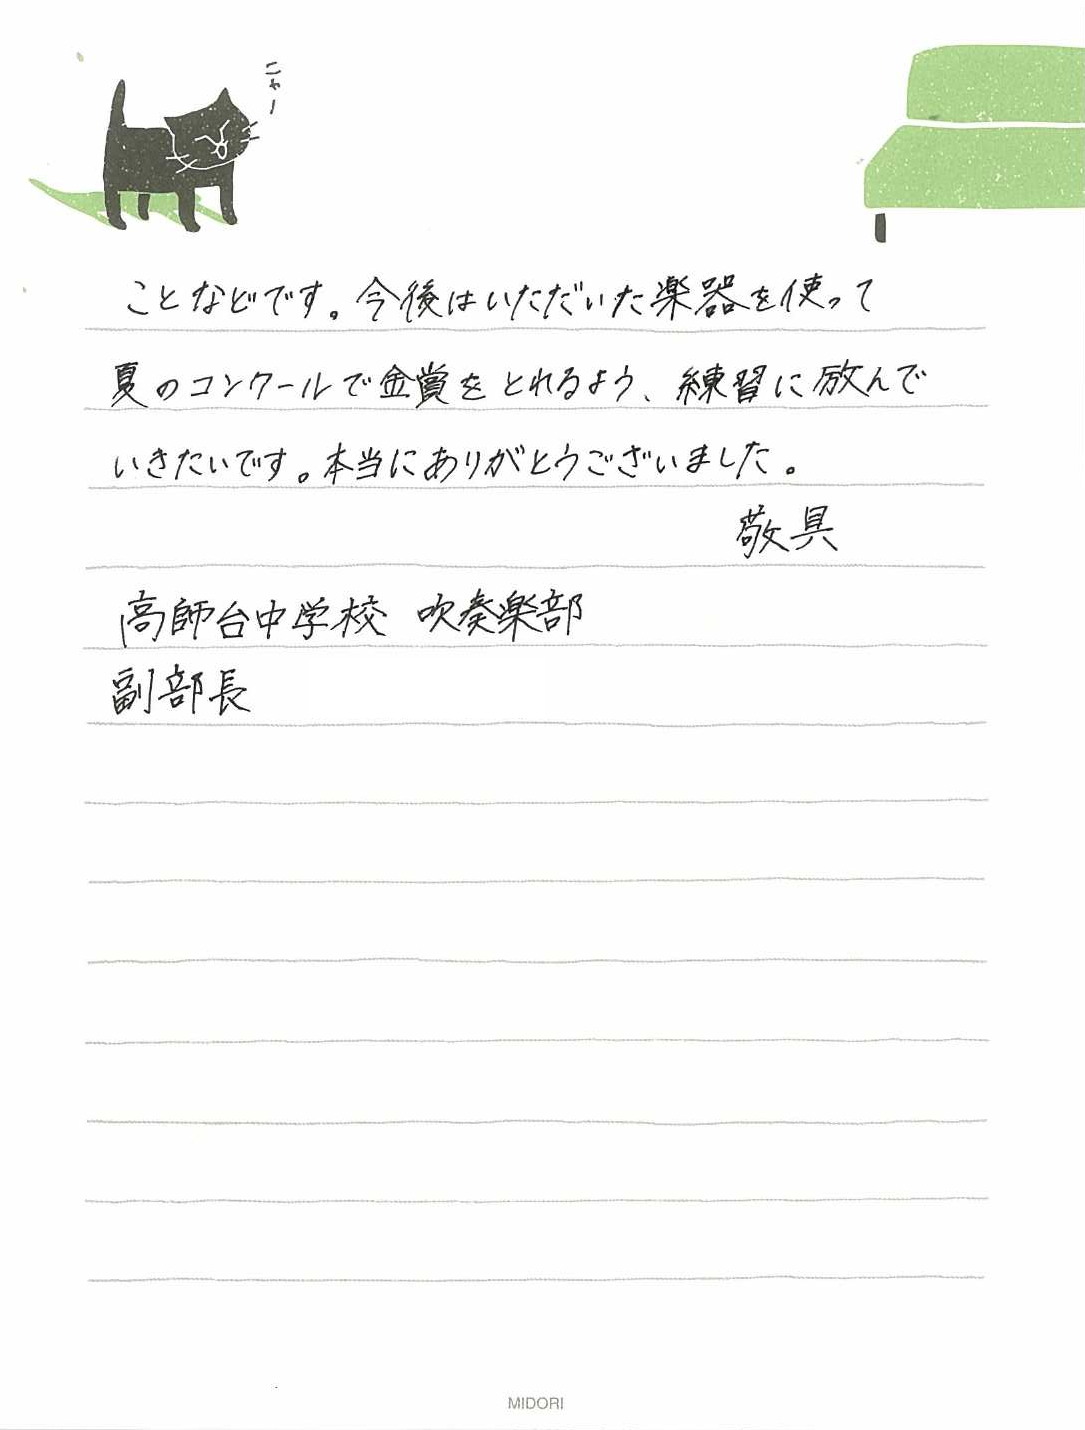 ニャー
ことなどです。今後はいただいた楽器を使って
夏のコンクールで金賞をとれるよう、練習に励んで
いきたいです。本当にありがとうございました。
敬具
高師台中学校 吹奏楽部
副部長
MIDORI